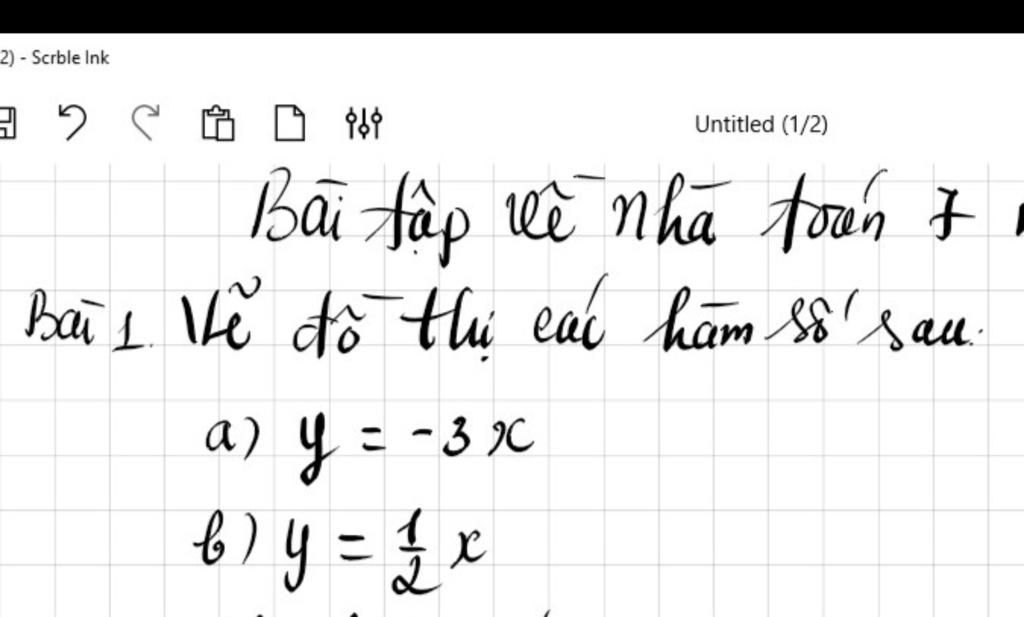 2) - Scrble Ink
Untitled (1/2)
Bài tập về nhà toán 7
Bài 1. Vẽ đồ thị các hàm số sau:
a) y = -3x
b) y = 1/2 x